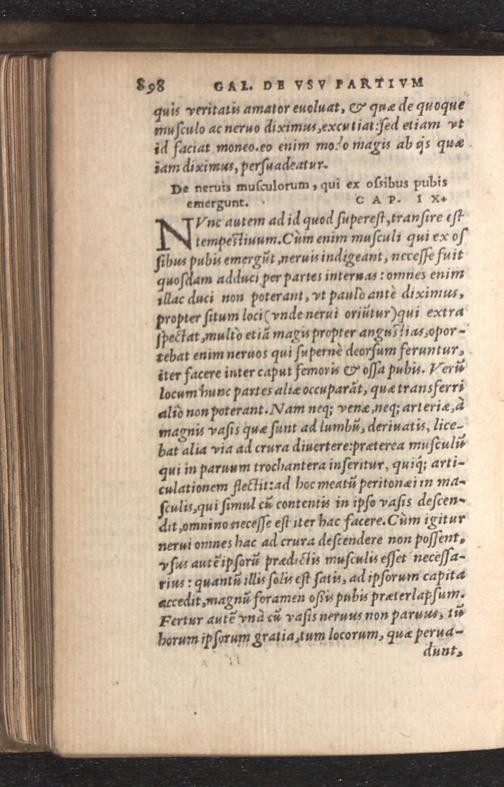 898 GAL. DE VSV PARTIVM
quis veritatis amator euoluat, & quæ de quoque
musculo ac neruo diximus, excutiat: sed etiam vt
id faciat moneo. eo enim modo magis ab ijs quæ
iam diximus, persuadeatur.
De neruis musculorum, qui ex ossibus pubis
emergunt. CAP. IX.
NVnc autem ad id quod superest, transire est
tempestiuum. Cùm enim musculi qui ex os
sibus pubis emergũt, neruis indigeant, necesse fuit
quosdam adduci per partes internas: omnes enim
illac duci non poterant, vt paulò antè diximus,
propter situm loci (vnde nerui oriũtur) qui extra
spectat, multò etiã magis propter angustias, opor-
tebat enim neruos qui supernè deorsum feruntur,
iter facere inter caput femoris & ossa pubis. Verũ
locum hunc partes aliæ occuparãt, quæ transferri
aliò non poterant. Nam neq; venæ, neq; arteriæ, à
magnis vasis quæ sunt ad lumbũ, deriuatis, lice-
bat alia via ad crura diuertere: præterea musculũ
qui in paruum trochantera inseritur, quiq; arti-
culationem flectit: ad hoc meatũ peritonæi in ma-
sculis, qui simul cũ contentis in ipso vasis descen-
dit, omnino necesse est iter hac facere. Cùm igitur
nerui omnes hac ad crura descendere non possent,
vsus autẽ ipsorũ prædictis musculis esset necessa-
rius: quantũ illis solis est satis, ad ipsorum capita
accedit, magnũ foramen oßis pubis præterlapsum.
Fertur autẽ vnà cũ vasis neruus non paruus, tũ
horum ipsorum gratia, tum locorum, quæ perua-
dunt,